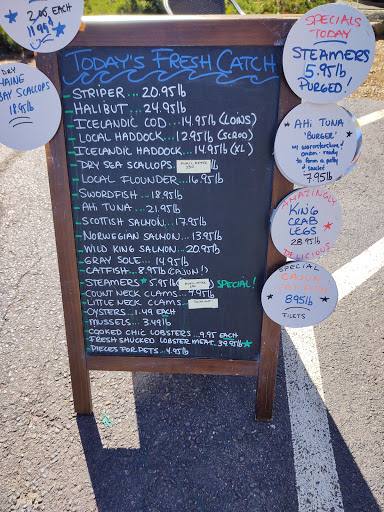 2.05 EACH
DRY
BAY SCALLOPS
18.95lb
TODAY'S FRESH CATCH
STRIPER... 20.95lb
HALIBUT... 24.95lb
ICELANDIC COD...14.95lb (LOINS)
LOCAL HADDOCK...12.95lb (SCROD)
ICELANDIC HADDOCK...14.95lb (XL)
DRY SEA SCALLOPS
LOCAL FLOUNDER...16.95lb
SWORDFISH...18.95lb
AHI TUNA...21.95lb
SCOTTISH SALMON...17.95lb
NORWEGIAN SALMON...13.95lb
WILD KING SALMON...20.95lb
GRAY SOLE...14.95lb
CATFISH...8.95lb (CAJUN!)
STEAMERS* 5.95lb SPECIAL!
COUNT NECK CLAMS...
LITTLE NECK CLAMS
OYSTERS...1.49 EACH
MUSSELS...3.49lb
COOKED CHIC LOBSTERS...9.95 EACH
FRESH SHUCKED LOBSTER MEAT 39.95lb
PIECES FOR PETS...4.95lb
SPECIALS
TODAY
STEAMERS
5.95lb
PURGED!
AHI TUNA
"BURGER"
w/ worcestershire &
onion - ready
to form a patty
& sauté!
7.95lb
AMAZINGLY
KING
CRAB
LEGS
28.95lb
DELICIOUS
SPECIAL
CAJUN
CATFISH
8.95lb
FILETS